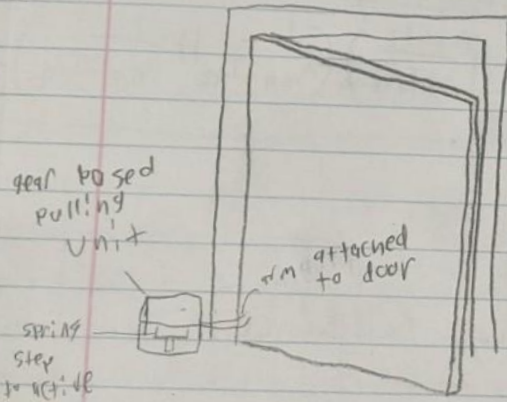 gear based
pulling
unit
arm attached
to door
spring
step
to active